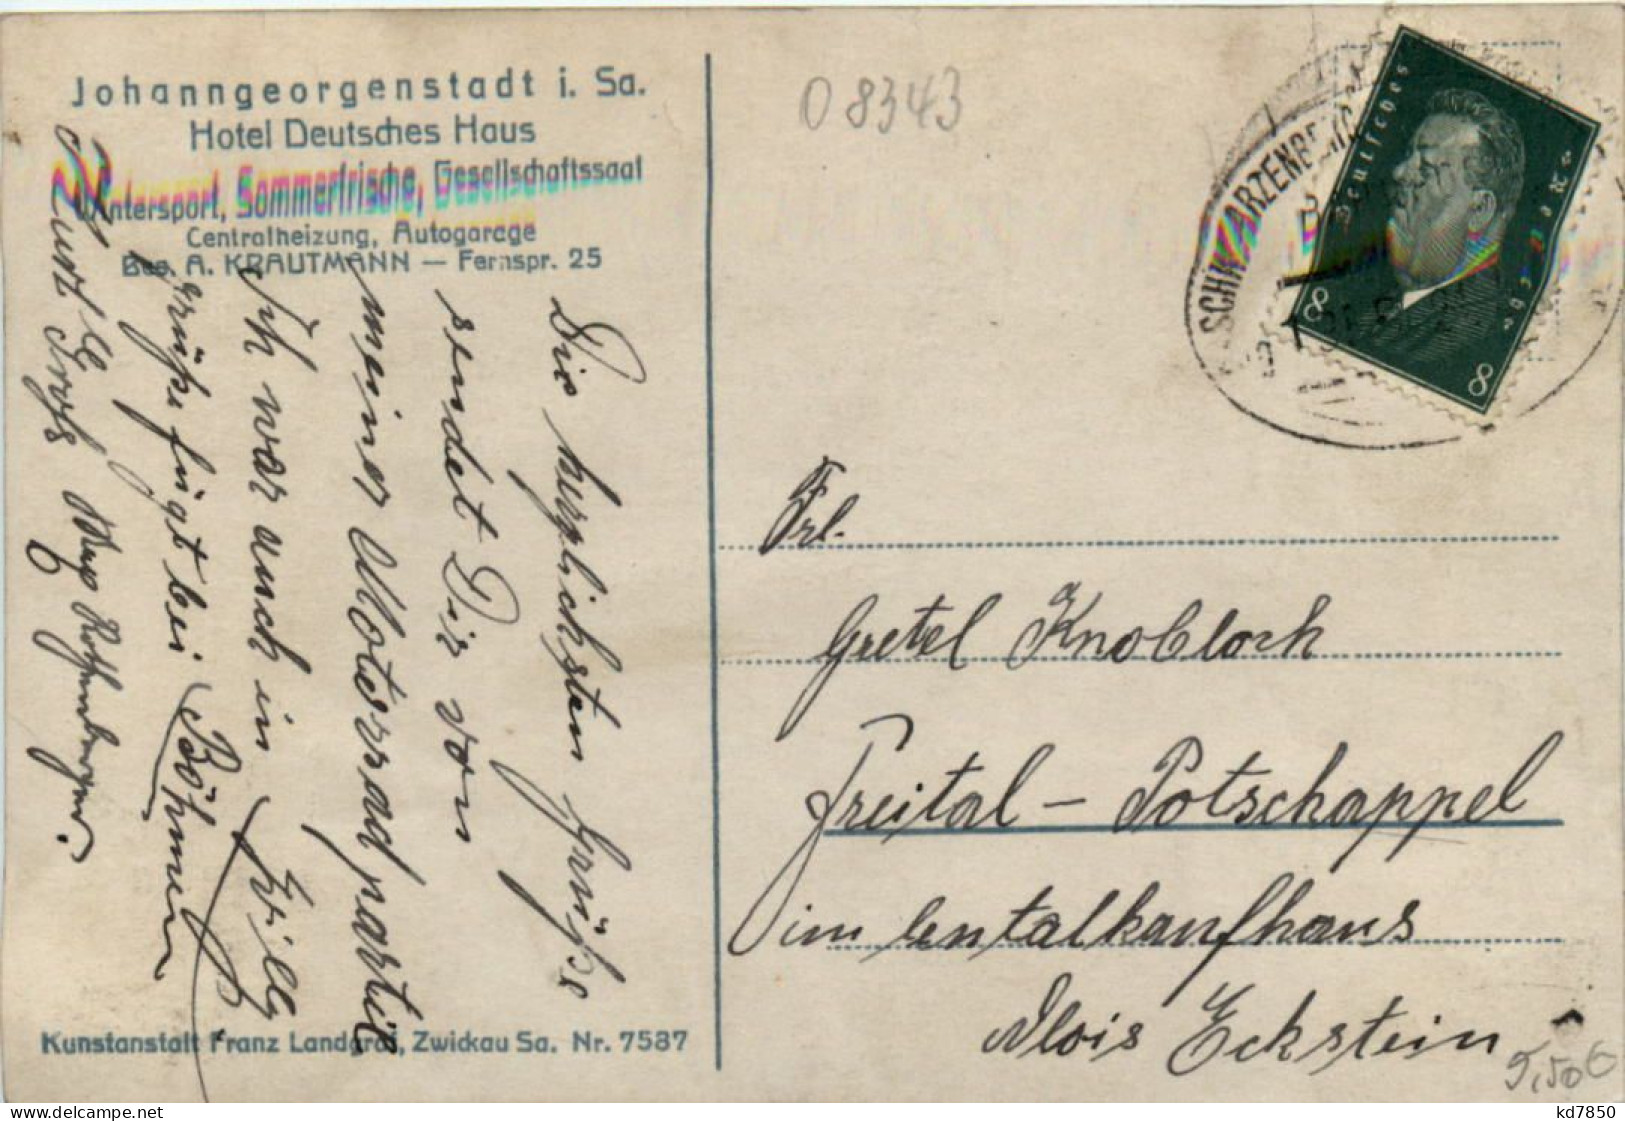 Johanngeorgenstadt i. Sa.
Hotel Deutsches Haus
Wintersport, Sommerfrische, Gesellschaftssaal
Centralheizung, Autogarage
Bes. A. KRAUTMANN — Fernspr. 25
Die herzlichsten Grüße
sendet Dir von
meiner Motorradpartie
Willy
Ich war auch in
Böhmen
grüße fügt bei
Kunstanstalt Franz Landgraf, Zwickau Sa. Nr. 7587
08343
SCHWARZENBERG
Deutsches Reich
8
8
Frl.
Gretel Knobloch
Freital – Potschappel
im Centalkaufhaus
Alois Eckstein
5,50€
kd7850